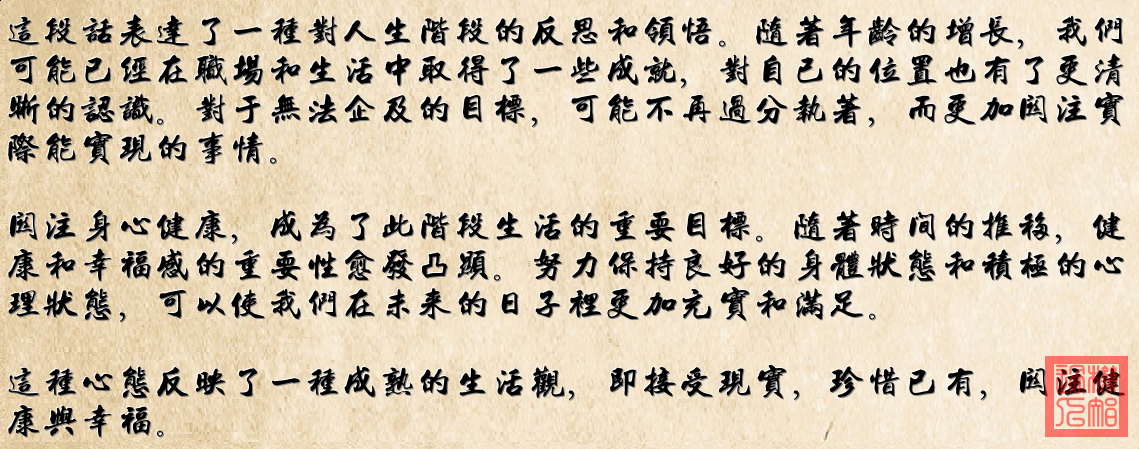 這段話表達了一種對人生階段的反思和領悟。隨著年齡的增長，我們
可能已經在職場和生活中取得了一些成就，對自己的位置也有了更清
晰的認識。對于無法企及的目標，可能不再過分執著，而更加関注實
際能實現的事情。
関注身心健康，成為了此階段生活的重要目標。隨著時间的推移，健
康和幸福感的重要性愈發凸顯。努力保持良好的身體狀態和積極的心
理狀態，可以使我們在未来的日子裡更加充實和滿足。
這種心態反映了一種成熟的生活觀，即接受現實，珍惜已有，関注健
康與幸福。